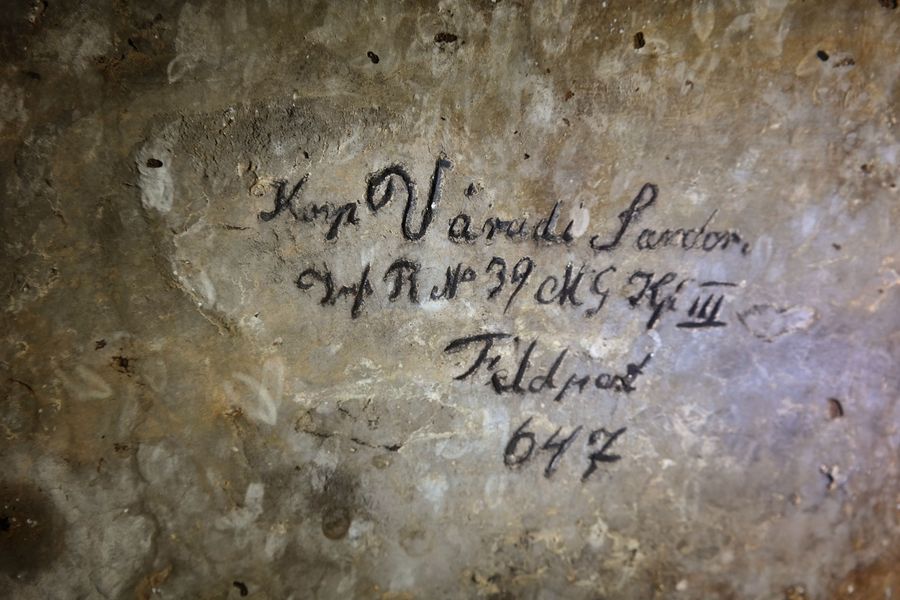 Korp Váradi Sandor.
Inf R No 39 MG Kp III
Feldpost
647